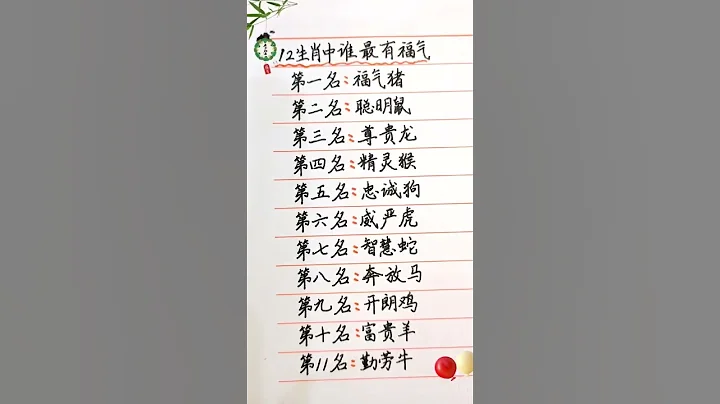 12生肖中谁最有福气
第一名:福气猪
第二名:聪明鼠
第三名:尊贵龙
第四名:精灵猴
第五名:忠诚狗
第六名:威严虎
第七名:智慧蛇
第八名:奔放马
第九名:开朗鸡
第十名:富贵羊
第11名:勤劳牛